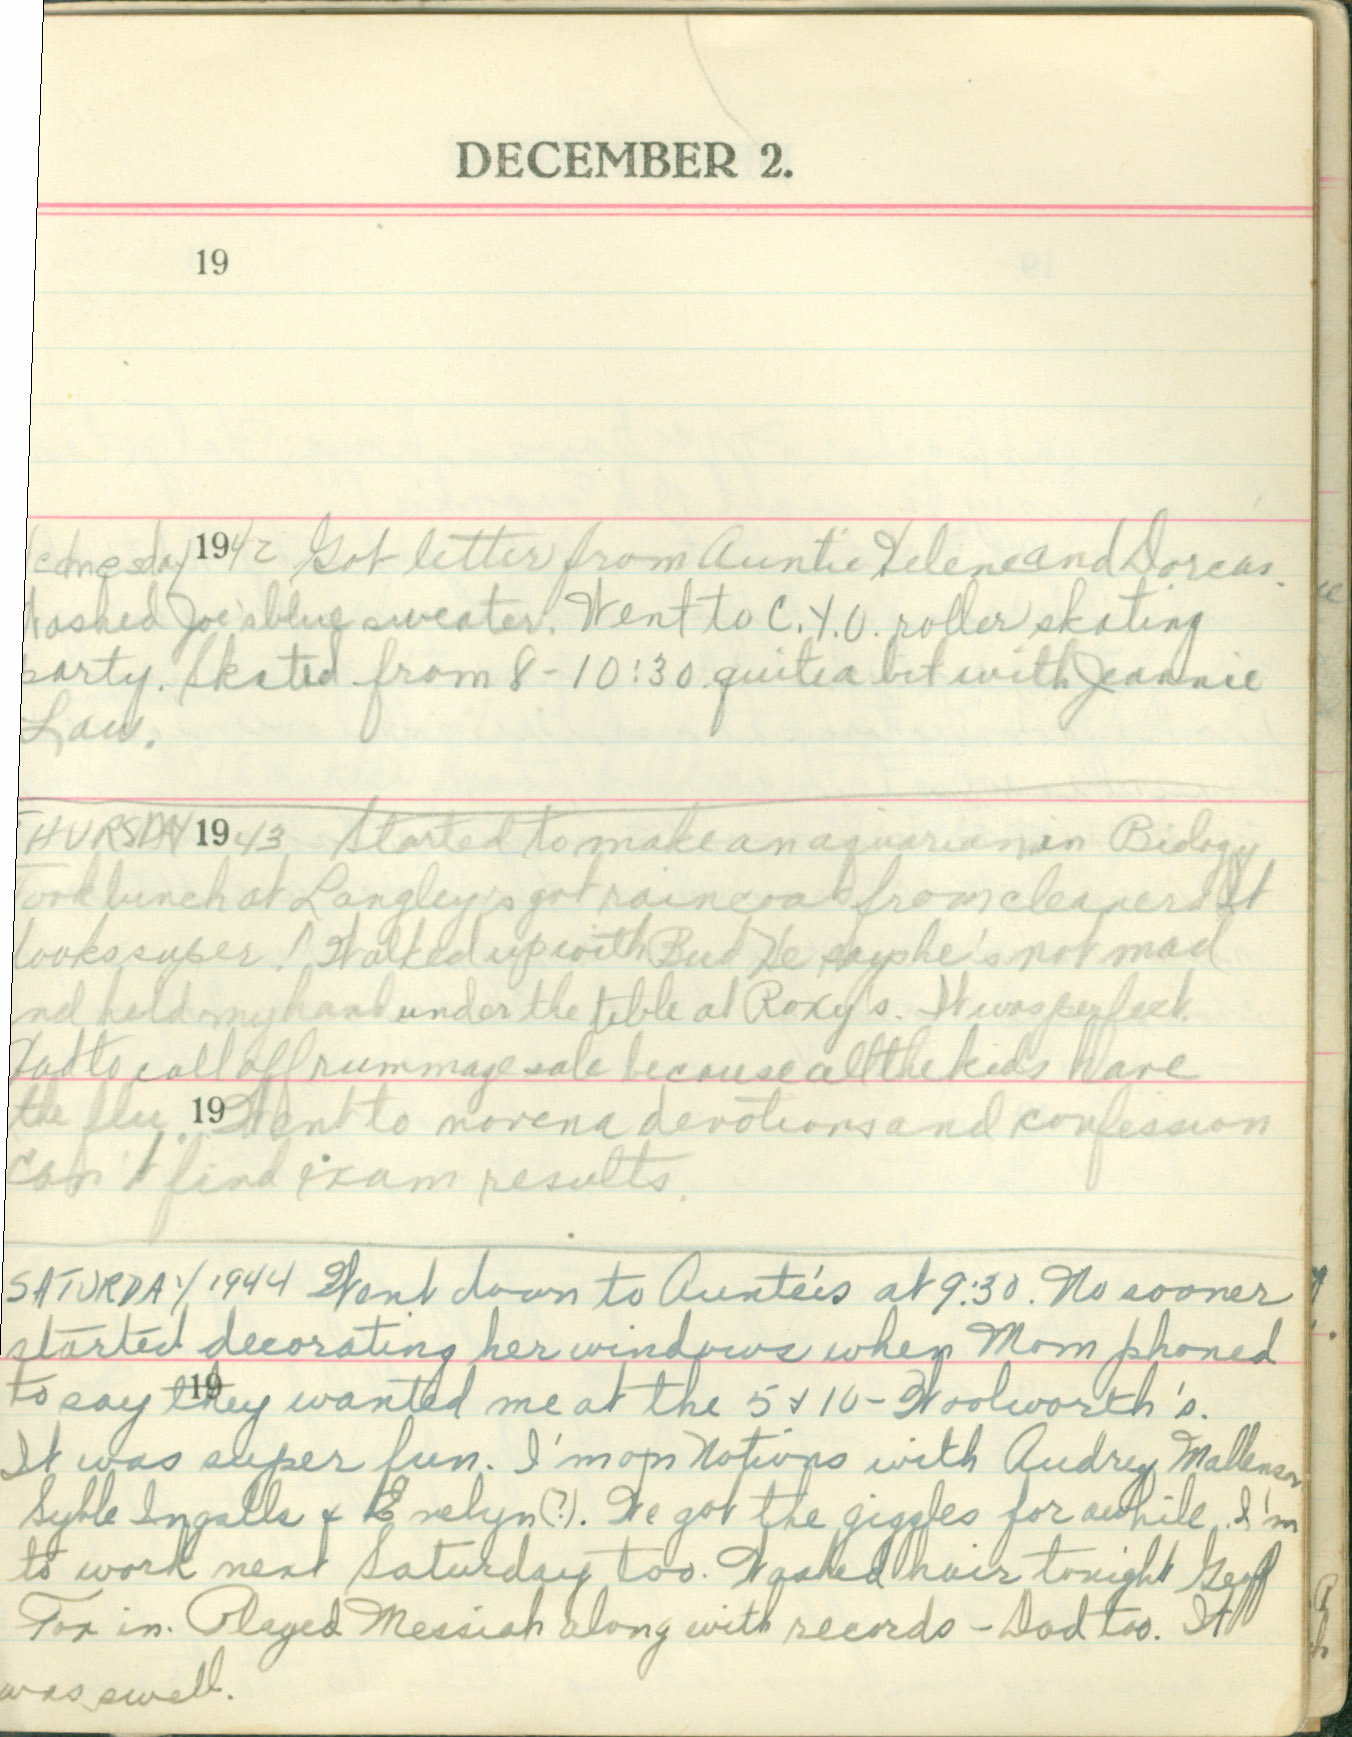 DECEMBER 2.
19
Wednesday 1942 Got letter from Auntie Helene and Dorcas.
Washed Joe's blue sweater. Went to C.Y.O. roller skating
party. Skated from 8-10:30 quite a bit with Jeannie
Law.
THURSDAY 1943 Started to make an aquarian in Biology
Took lunch at Langley's got raincoat from cleaners It
looks super! Walked up with Bud He says he's not mad
and held my hand under the table at Roxy's. It was perfect.
Had to call off rummage sale because all the kids have
the flu. 19 Went to novena devotions and confession
Can't find exam results.
SATURDAY 1944 Went down to Auntie's at 9:30. No sooner
started decorating her windows when Mom phoned
19
to say they wanted me at the 5 & 10 - Woolworth's.
It was super fun. I'm on Notions with Audrey Mallenson
Syble Ingalls & Evelyn (?). We got the giggles for awhile. I'm
to work next Saturday too. Washed hair tonight Geoff
Fox in. Played Messiah along with records - Dad too. It
was swell.